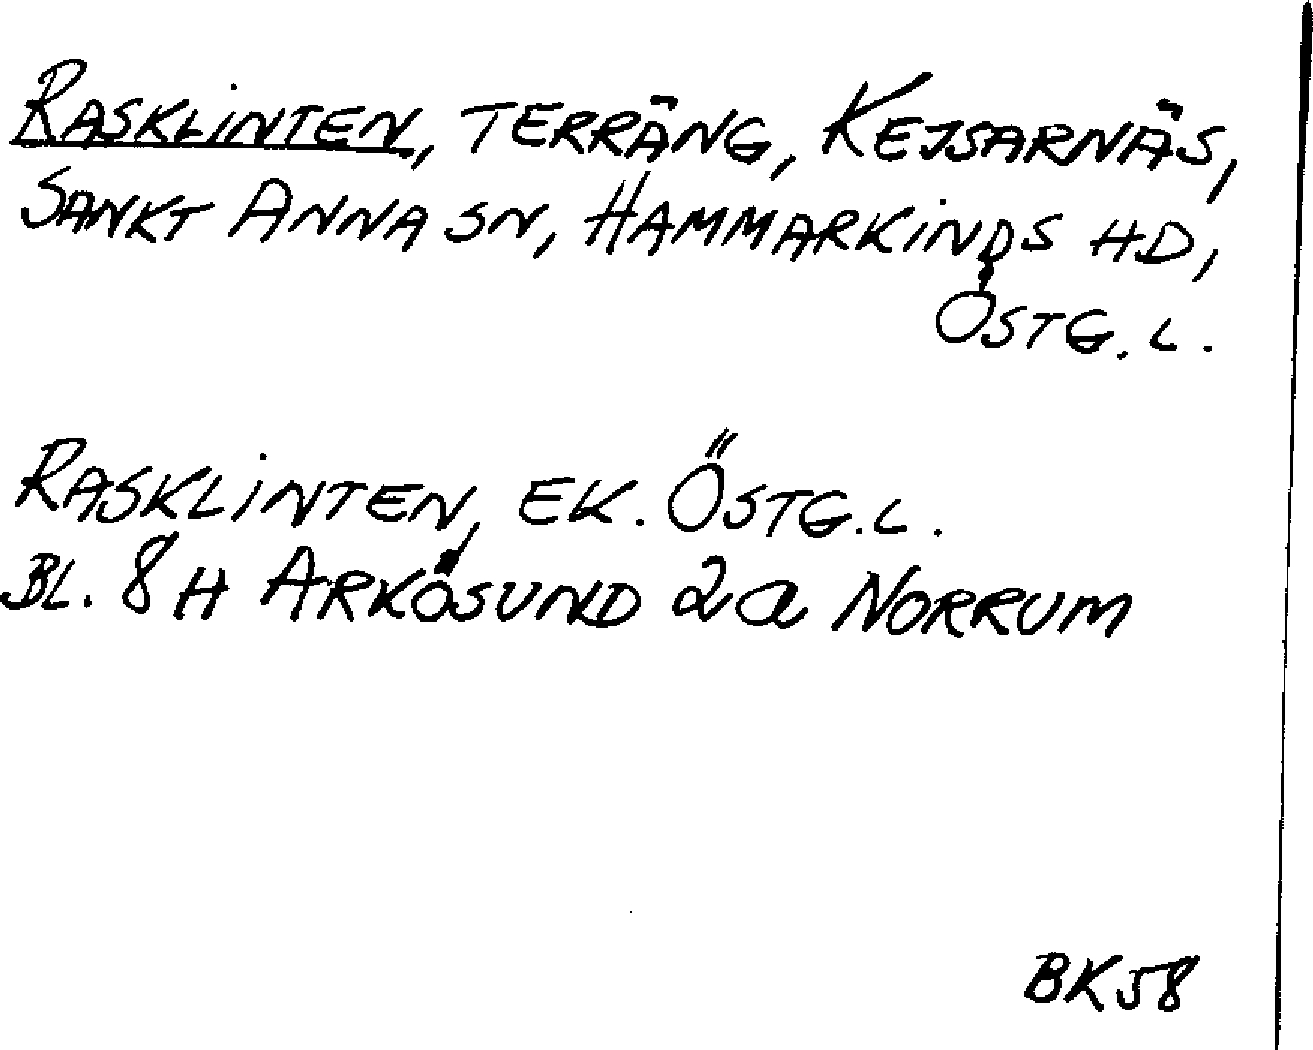 RASKLINTEN, TERRÄNG, KEJSARNÄS,
SANKT ANNA SN, HAMMARKINDS HD,
ÖSTG. L.
RASKLINTEN, EK. ÖSTG. L.
BL. 8H ARKÖSUND 2a NORRUM
BK58